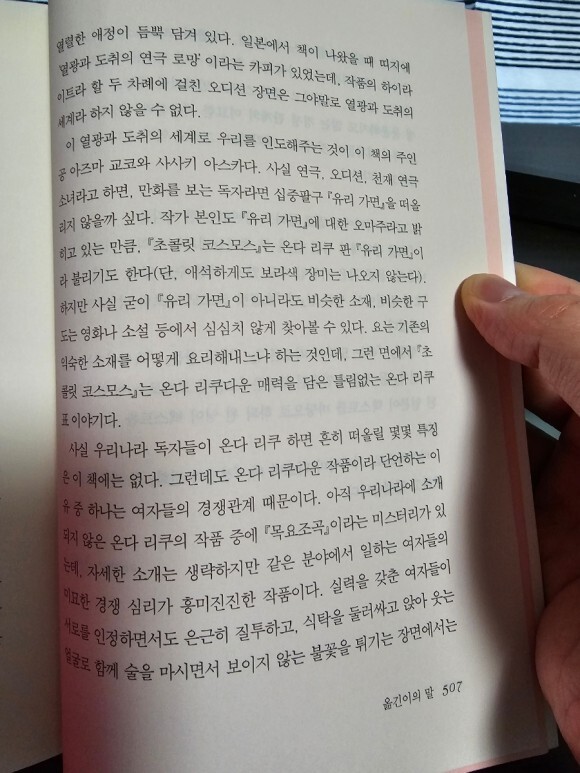 열렬한 애정이 듬뿍 담겨 있다. 일본에서 책이 나왔을 때 띠지에
'열광과 도취의 연극 로망'이라는 카피가 있었는데, 작품의 하이라
이트라 할 두 차례에 걸친 오디션 장면은 그야말로 열광과 도취의
세계라 하지 않을 수 없다.
이 열광과 도취의 세계로 우리를 인도해주는 것이 이 책의 주인
공 아즈마 교코와 사사키 아스카다. 사실 연극, 오디션, 천재 연극
소녀라고 하면, 만화를 보는 독자라면 십중팔구 『유리 가면』을 떠올
리지 않을까 싶다. 작가 본인도 『유리 가면』에 대한 오마주라고 밝
히고 있는 만큼, 『초콜릿 코스모스』는 온다 리쿠 판 『유리 가면』이
라 불리기도 한다(단, 애석하게도 보라색 장미는 나오지 않는다).
하지만 사실 굳이 『유리 가면』이 아니라도 비슷한 소재, 비슷한 구
도는 영화나 소설 등에서 심심치 않게 찾아볼 수 있다. 요는 기존의
익숙한 소재를 어떻게 요리해내느냐 하는 것인데, 그런 면에서 『초
콜릿 코스모스』는 온다 리쿠다운 매력을 담은 틀림없는 온다 리쿠
표 이야기다.
사실 우리나라 독자들이 온다 리쿠 하면 흔히 떠올릴 몇몇 특징
은 이 책에는 없다. 그런데도 온다 리쿠다운 작품이라 단언하는 이
유 중 하나는 여자들의 경쟁관계 때문이다. 아직 우리나라에 소개
되지 않은 온다 리쿠의 작품 중에 『목요조곡』이라는 미스터리가 있
는데, 자세한 소개는 생략하지만 같은 분야에서 일하는 여자들의
미묘한 경쟁 심리가 흥미진진한 작품이다. 실력을 갖춘 여자들이
서로를 인정하면서도 은근히 질투하고, 식탁을 둘러싸고 앉아 웃는
얼굴로 함께 술을 마시면서 보이지 않는 불꽃을 튀기는 장면에서는
옮긴이의 말 507